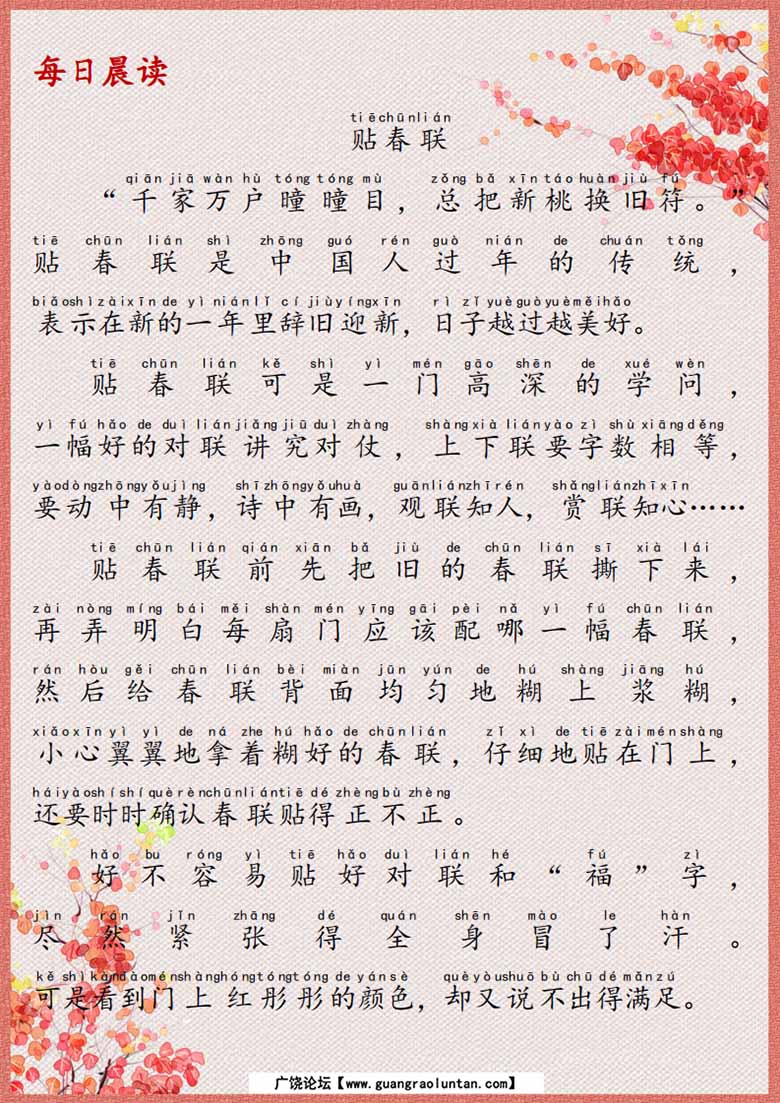 每日晨读
tiēchūnlián
贴春联
qiān jiā wàn hù tóng tóng mù zǒng bǎ xīn táo huàn jiù fú
“千家万户曈曈目，总把新桃换旧符。”
tiē chūn lián shì zhōng guó rén guò nián de chuán tǒng
贴春联是中国人过年的传统，
biǎo shì zài xīn de yì nián lǐ cí jiù yíng xīn rì zǐ yuè guò yuè měi hǎo
表示在新的一年里辞旧迎新，日子越过越美好。
tiē chūn lián kě shì yì mén gāo shēn de xué wèn
贴春联可是一门高深的学问，
yì fú hǎo de duì lián jiǎng jiū duì zhàng shàng xià lián yào zì shù xiāng děng
一幅好的对联讲究对仗，上下联要字数相等，
yào dòng zhōng yǒu jìng shī zhōng yǒu huà guān lián zhī rén shǎng lián zhī xīn
要动中有静，诗中有画，观联知人，赏联知心……
tiē chūn lián qián xiān bǎ jiù de chūn lián sī xià lái
贴春联前先把旧的春联撕下来，
zài nòng míng bái měi shàn mén yīng gāi pèi nǎ yì fú chūn lián
再弄明白每扇门应该配哪一幅春联，
rán hòu gěi chūn lián bèi miàn jūn yún de hú shàng jiāng hú
然后给春联背面均匀地糊上浆糊，
xiǎo xīn yì yì de ná zhe hú hǎo de chūn lián zǐ xì de tiē zài mén shàng
小心翼翼地拿着糊好的春联，仔细地贴在门上，
hái yào shí shí què rèn chūn lián tiē dé zhèng bù zhèng
还要时时确认春联贴得正不正。
hǎo bu róng yì tiē hǎo duì lián hé fú zì
好不容易贴好对联和“福”字，
jìn rán jǐn zhāng dé quán shēn mào le hàn
尽然紧张得全身冒了汗。
kě shì kàn dào mén shàng hóng tóng tóng de yán sè què yòu shuō bù chū dé mǎn zú
可是看到门上红彤彤的颜色，却又说不出得满足。
广饶论坛【www.guangraoluntan.com】